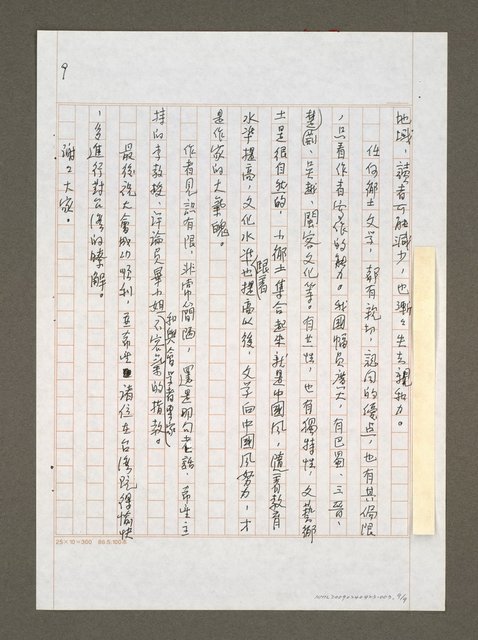 9
地域、讀者可能減少，也漸漸失去親和力。
任何鄉土文学，都有親切，認同的優点，也有其侷限
，只看作者寫作的魅力。我國幅員廣大，有巴蜀、三晉、
楚國、吳越、閩客文化等。有共性，也有獨特性，文藝鄉
土是很自然的，小鄉土集合起來就是中國風，隨著教育
水準提高，文化水準也跟著提高以後，文学向中國風努力，才
是作家的大氣魄。
作者見識有限，非常簡陋，還是那句老話，希望主
持的李教授、評論員畢小姐和與會学者專家不客氣的指教。
最後祝大會成功順利，並希望諸位在台灣玩得愉快
，多進行對台灣的瞭解。
謝々大家。
25×10=300 86.5.100本
NMTL20090240423-003, 9/9